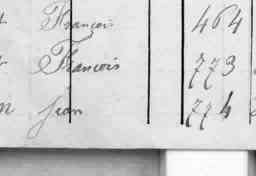 François 464
François 773
n Jean 774